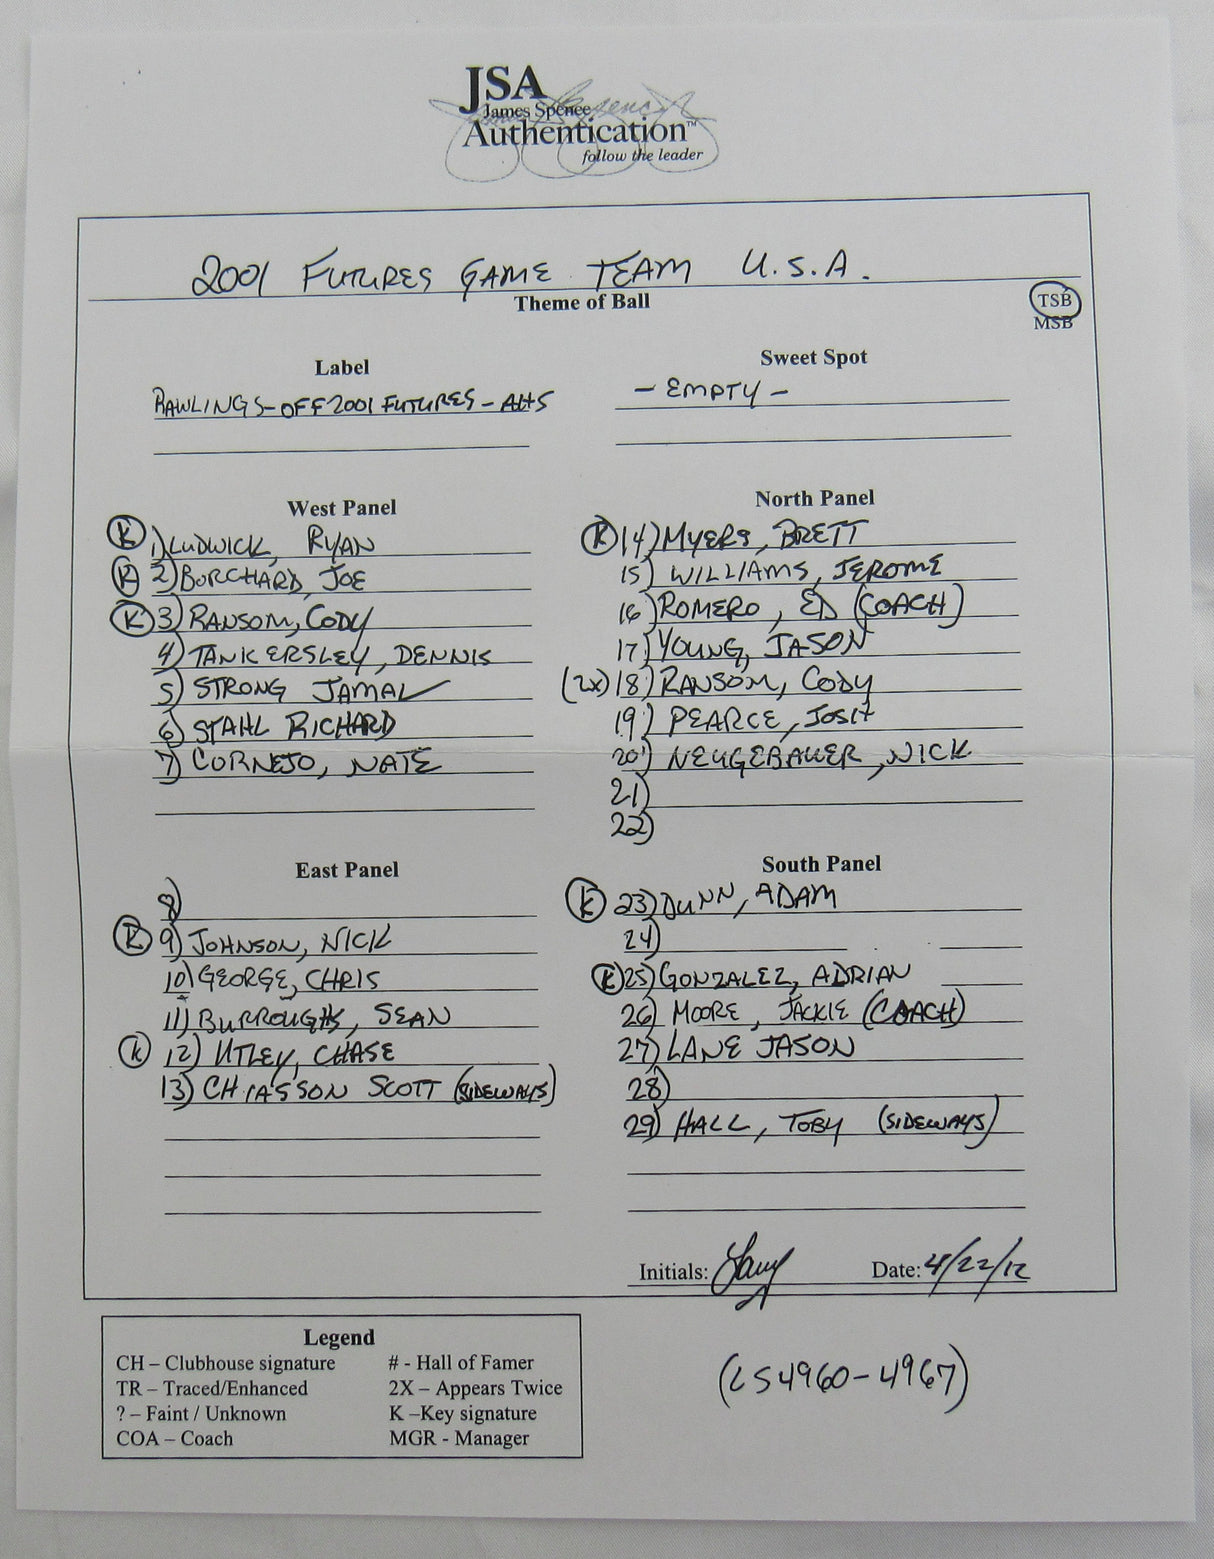 JSA
James Spence
Authentication™
follow the leader
2001 FUTURES GAME TEAM U.S.A.
Theme of Ball
TSB
MSB
Label
RAWLINGS-OFF 2001 FUTURES-
Sweet Spot
- EMPTY -
West Panel
(K) 1) LUDWICK, RYAN
(K) 2) BORCHARD, JOE
(K) 3) RANSOM, CODY
4) TANKERSLEY, DENNIS
5) STRONG JAMAL
6) STAHL RICHARD
7) CORNEJO, NATE
North Panel
(K) 14) MYERS, BRETT
15) WILLIAMS, JEROME
16) ROMERO, ED (COACH)
17) YOUNG, JASON
(2X) 18) RANSOM, CODY
19) PEARCE, JOSH
20) NEUGEBAUER, NICK
21)
22)
East Panel
8)
(K) 9) JOHNSON, NICK
10) GEORGE, CHRIS
11) BURROUGHS, SEAN
(K) 12) UTLEY, CHASE
13) CHIASSON SCOTT (SIDEWAYS)
South Panel
(K) 23) DUNN, ADAM
24)
(K) 25) GONZALEZ, ADRIAN
26) MOORE, JACKIE (COACH)
27) LANE JASON
28)
29) HALL, TOBY (SIDEWAYS)
Initials:
Date: 4/22/12
Legend
CH – Clubhouse signature
TR – Traced/Enhanced
? – Faint / Unknown
COA – Coach
# - Hall of Famer
2X – Appears Twice
K –Key signature
MGR - Manager
(LS4960-4967)